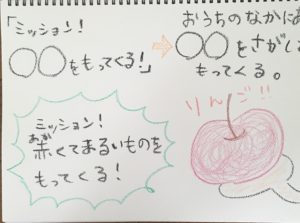 「ミッション!
〇〇をもってくる!」
おうちのなかにあ
〇〇をさがし
もってくる。
ミッション!
あか
赤くてまるいものを
もってくる!
りんご!!